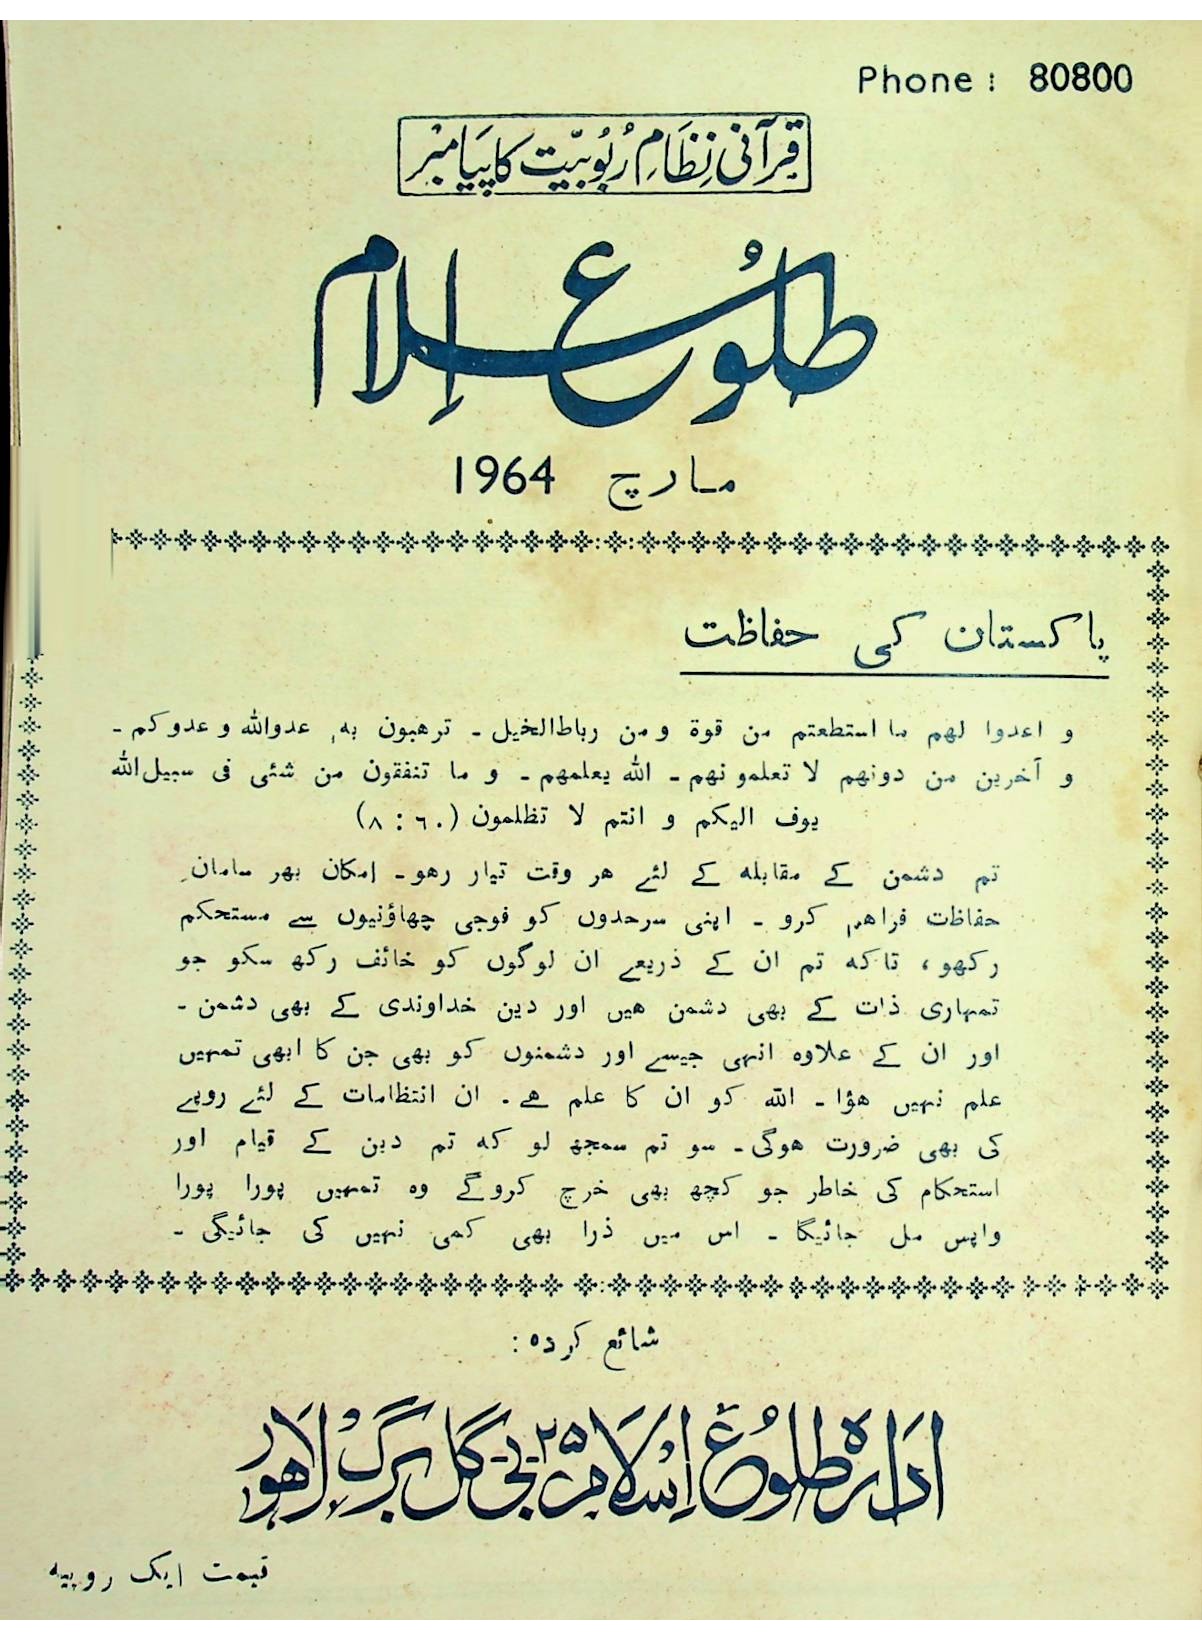 Phone : 80800
قرآنی نظامِ ربُوبیّت کا پیامبر
طلوعِ اسلام
مارچ 1964
پاکستان کی حفاظت
و اعدوا لهم ما استطعتم من قوة و من رباط الخیل ـ ترهبون به عدوالله و عدوکم ـ
و آخرین من دونهم لا تعلمونهم ـ الله یعلمهم ـ و ما تنفقون من شئی فی سبیل الله
یوف الیکم و انتم لا تظلمون (۸ : ٦٠)
تم دشمن کے مقابلہ کے لئے ھر وقت تیار رھو ـ امکان بھر سامانِ
حفاظت فراھم کرو ـ اپنی سرحدوں کو فوجی چھاؤنیوں سے مستحکم
رکھو، تاکہ تم ان کے ذریعے ان لوگوں کو خائف رکھ سکو جو
تمہاری ذات کے بھی دشمن ھیں اور دین خداوندی کے بھی دشمن ـ
اور ان کے علاوہ انہی جیسے اور دشمنوں کو بھی جن کا ابھی تمہیں
علم نہیں ھؤا ـ اللہ کو ان کا علم ھے ـ ان انتظامات کے لئے روپے
کی بھی ضرورت ھوگی ـ سو تم سمجھ لو کہ تم دین کے قیام اور
استحکام کی خاطر جو کچھ بھی خرچ کروگے وہ تمہیں پورا پورا
واپس مل جائیگا ـ اس میں ذرا بھی کمی نہیں کی جائیگی ـ
شائع کردہ :
ادارہ طلوعِ اسلام ۲۵ بی گلبرگ لاھور
قیمت ایک روپیہ